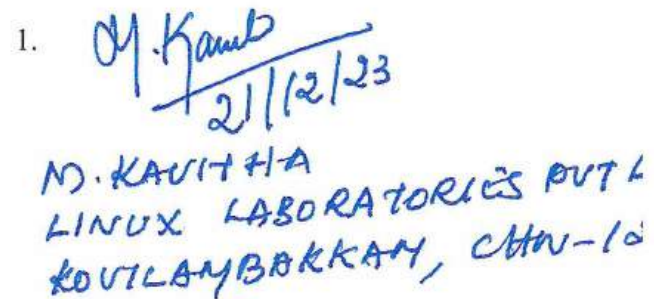 1. M. Kavi
21/12/23
M. KAVITHA
LINUX LABORATORIES PVT L
KOVILAMBAKKAM, CHN-